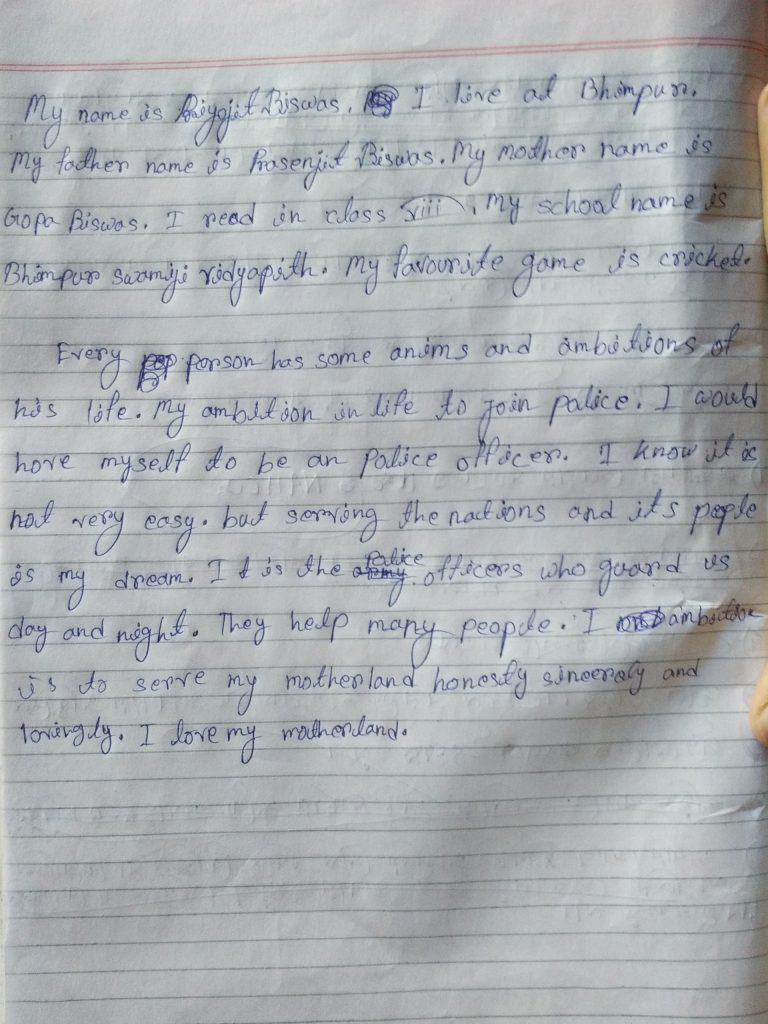 My name is Priyojit Biswas. I live at Bhimpur.
My father name is Prasenjit Biswas. My mother name is
Gopa Biswas. I read in class viii. My school name is
Bhimpur swamiji vidyapith. My favourite game is cricket.
Every person has some anims and ambitions of
his life. My ambition in life to join police. I would
hove myself to be an police officer. I know it is
not very easy. but serving the nations and its people
is my dream. It is the police officers who guard us
day and night. They help many people. I ambition
is to serve my motherland honestly sincerely and
lovingly. I love my motherland.